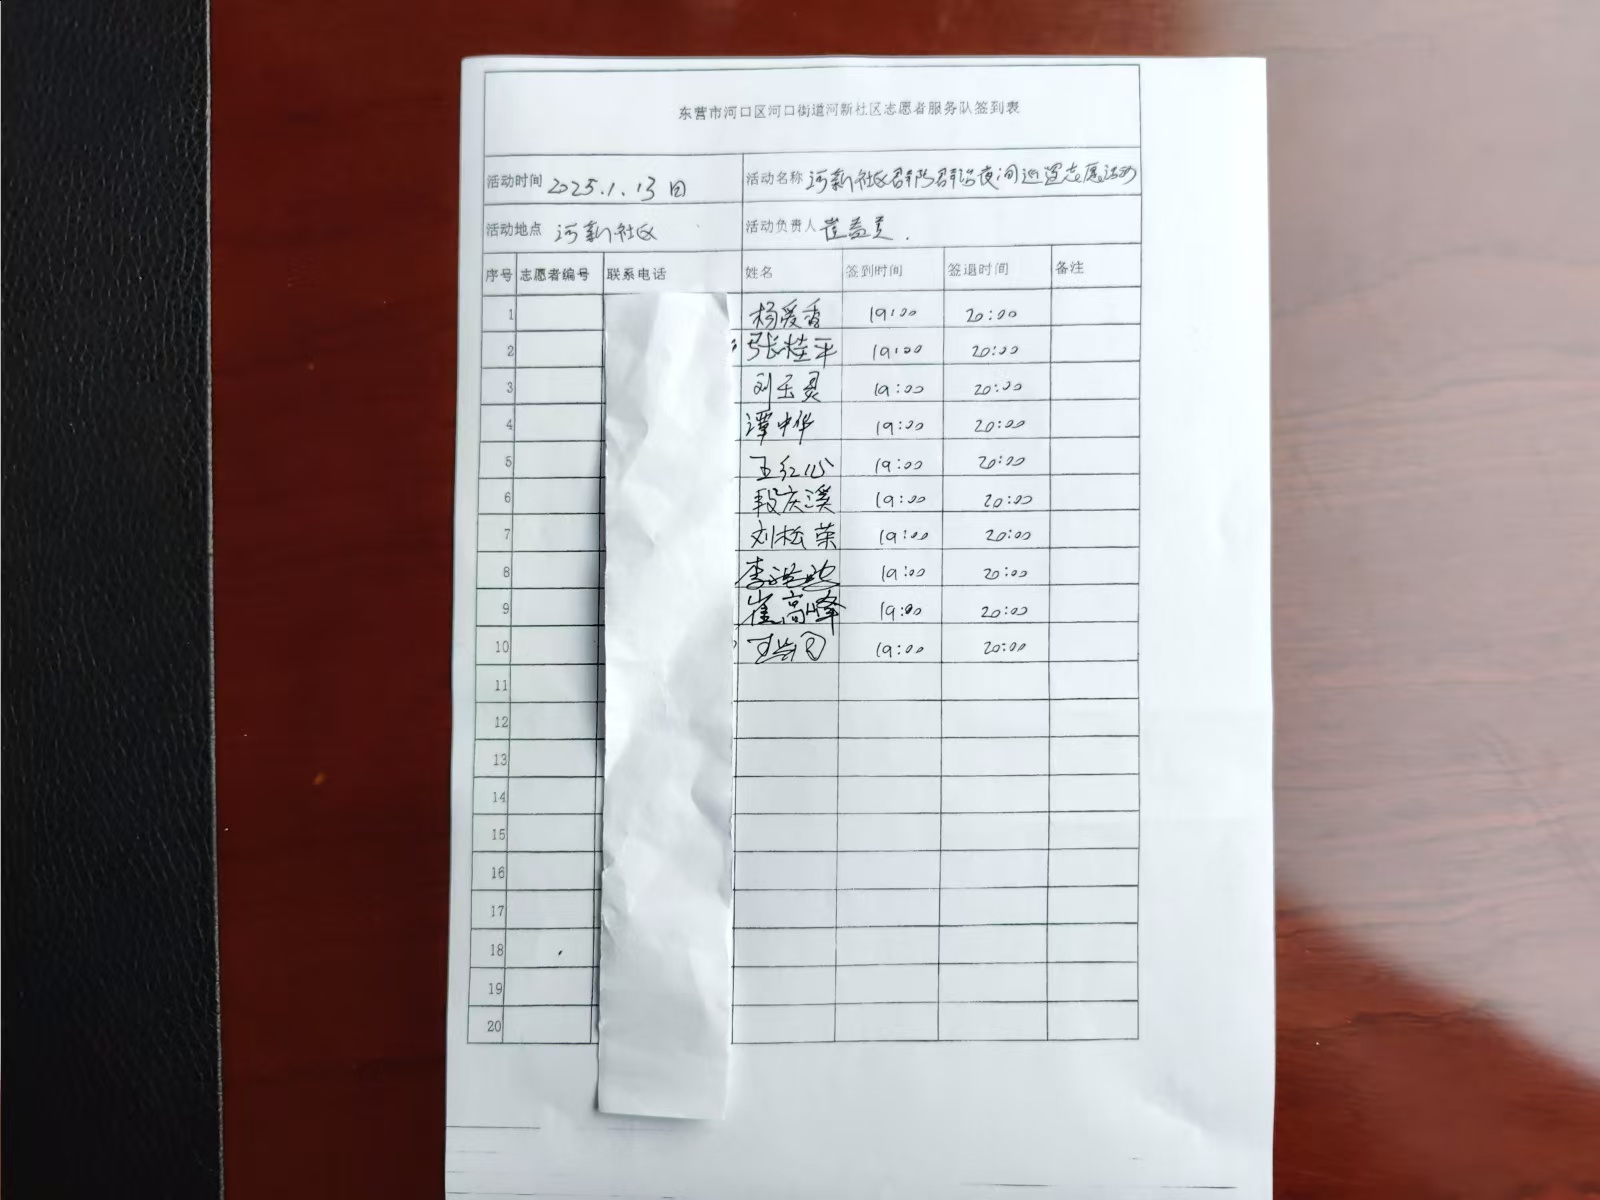 东营市河口区河口街道河新社区志愿者服务队签到表
活动时间 2025.1.13日 活动名称 河新社区群防群治夜间巡逻志愿活动
活动地点 河新社区 活动负责人 崔
序号 志愿者编号 联系电话 姓名 签到时间 签退时间 备注
1 杨爱香 19:00 20:00
2 张桂平 19:00 20:00
3 刘玉灵 19:00 20:00
4 谭中华 19:00 20:00
5 王红心 19:00 20:00
6 段庆溪 19:00 20:00
7 刘松荣 19:00 20:00
8 李 19:00 20:00
9 崔高峰 19:00 20:00
10 王 19:00 20:00
11
12
13
14
15
16
17
18
19
20